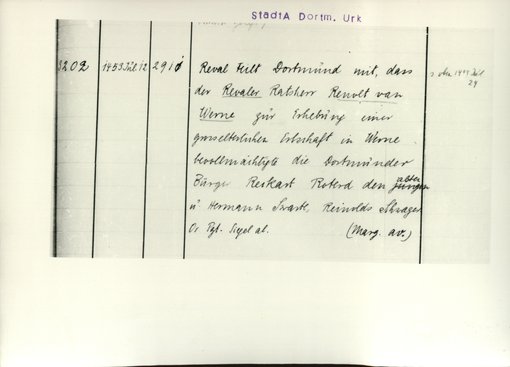 StadtA Dortm. Urk
3202 1453 Juli 12 2910 Reval teilt Dortmund mit, dass
der Revaler Ratsherr Renolt van
Werne zur Erhebung einer
grosselterlichen Erbschaft in Werne
bevollmächtigte die Dortmunder
Bürger Reskart Roterd den jungen alten
u. Hermann Swarte, Reinolds Schwager
Or Pgt. Siegel ab. (Marg. av.)
24